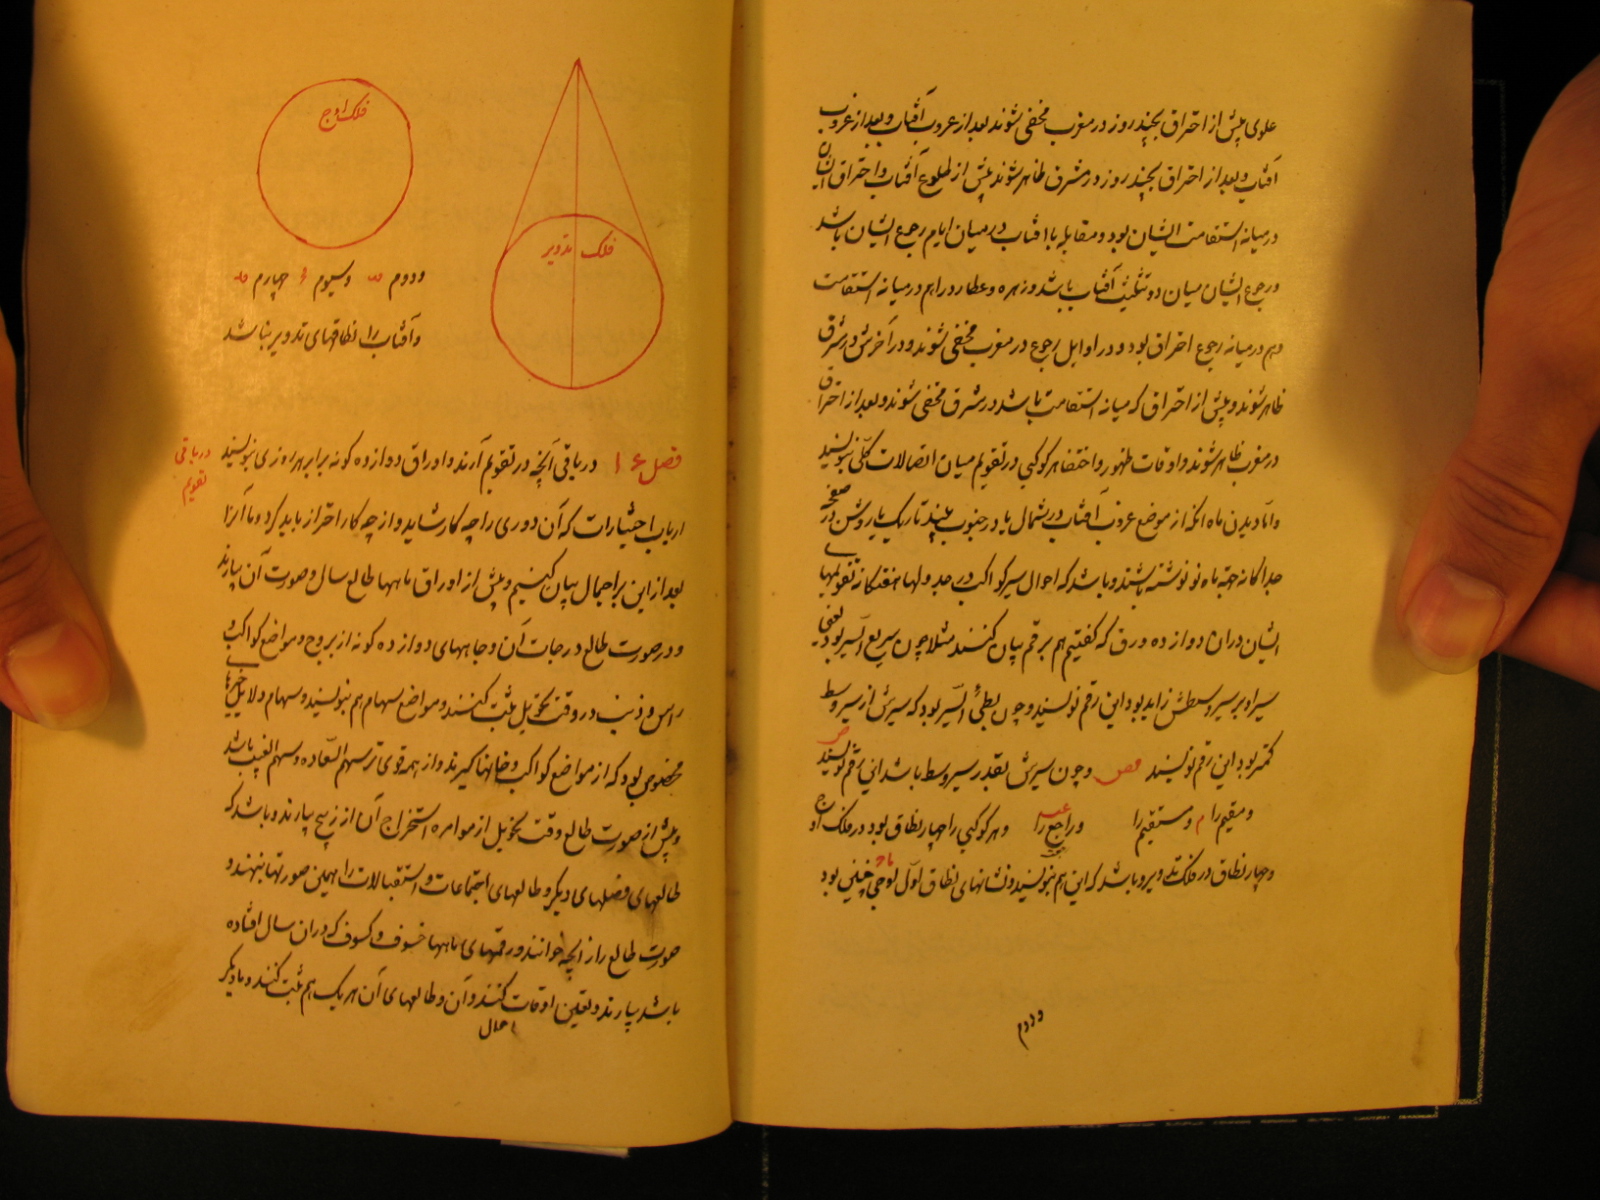 علوی پیش از احتراق بچند روز در مغرب مخفی شوند بعد از غروب آفتاب و بعد از غروب
آفتاب و بعد از احتراق بچند روز در مشرق ظاهر شوند پیش از طلوع آفتاب و احتراق ایشان
در میانه استقامت ایشان بود و مقابله با آفتاب در میان ایام رجوع ایشان باشد
و رجوع ایشان میان دو تثلیث آفتاب باشد و زهره و عطارد را هم در میانه استقامت
و هم در میانه رجوع احتراق بود و در اوایل رجوع در مغرب مخفی شوند و در آخرش در مشرق
ظاهر شوند و پیش از احتراق که میانه استقامت باشد در مشرق مخفی شوند و بعد از احتراق
در مغرب ظاهر شوند و اوقات ظهور و اختفا هر کوکبی در تقویم میان اتصالات کلی بنویسند
و اما دیدن ماه آنکه از موضع غروب آفتاب در شمال یا در جنوب بیند تاریک یا روشن در صفحه
جداگانه جهة ماه نو نوشته باشند و باشد که احوال سیر کواکب در جدولها هفتگانه تقویمهای
ایشان در ان دوازده ورق که گفتیم هم برقم بیان کنند مثلا چون سریع السیر بود یعنی
سیر او بر سیر وسطش زاید بود این رقم نویسند و چون بطئ السیر بود که سیرش از سیر وسط
کمتر بود این رقم نویسند و چون سیرش بقدر سیر وسط باشد این رقم نویسند
و مقیم را م و مستقیم را و راجع را و هر کوکبی را چهار نطاق بود در فلک اوج
و چهار نطاق در فلک تدویر و باشد که این هم بنویسند و نشانهای نطاق اول اوجی چنین بود
و دوم
فلک اوج
فلک تدویر
و دوم و سیوم چهارم
و آفتاب را نطاقهای تدویر نباشد
فصل ۱۶ در باقی آنچه در تقویم آرند و اوراق دوازده گونه برابر هر روزی بنویسند
در باقی
تقویم
ارباب اختیارات که آن دوری را چه کار شاید و از چه کار احتراز باید کرد و ما آنرا
بعد از این بر اجمال بیان کنیم و پیش از اوراق ماهها طالع سال و صورت آن بیارند
و در صورت طالع درجات آن و جاههای دوازده گونه از بروج و مواضع کواکب و
راس و ذنب در وقت تحویل ثبت کنند و مواضع سهام هم بنویسند و سهام دلایل چیزهای
مخصوص بود که از مواضع کواکب و خانها گیرند و از همه قوی تر سهم السعاده و سهم الغیب باشد
و پیش از صورت طالع وقت تحویل از موامره استخراج آن از زیج بیارند و باشد که
طالعهای فصلهای دیگر و طالعهای اجتماعات و استقبالات را همین صورتها بنهند و
صورت طالع را زایچه خوانند و رقمهای ماهها خسوف و کسوف که در ان سال افتاده
باشد بیارند و تعین اوقات کنند و آن و طالعهای آن هر یک هم ثبت کنند و یا دیگر
احوال